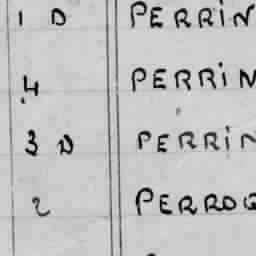 1 D PERRIN
4 PERRIN
3 D PERRIN
2 PERROG